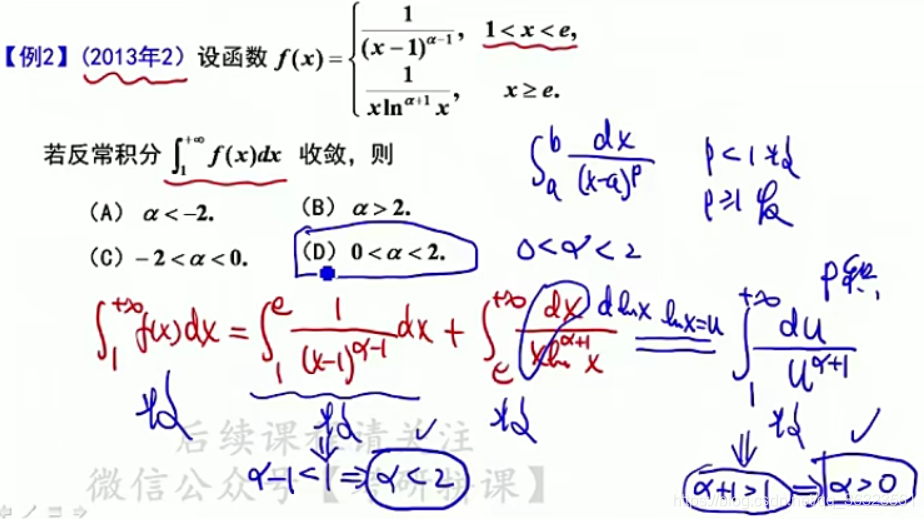 【例2】(2013年2) 设函数 f(x) = { 1/(x-1)^{α-1}, 1<x<e,
1/(x ln^{α+1} x), x≥e.
若反常积分 ∫_1^{+∞} f(x)dx 收敛，则
(A) α<-2. (B) α>2.
(C) -2<α<0. (D) 0<α<2.
∫_a^b dx/(x-a)^p p<1 收敛
p≥1 发散
0<α<2
∫_1^{+∞} f(x)dx = ∫_1^e 1/(x-1)^{α-1} dx + ∫_e^{+∞} dx/(x ln^{α+1} x) d ln x ln x=u ∫_1^{+∞} du/u^{α+1}
收敛 收敛 收敛 收敛
α-1<1 ⇒ α<2 ✓ α+1>1 ⇒ α>0 ✓
后续课程请关注
微信公众号【
课】